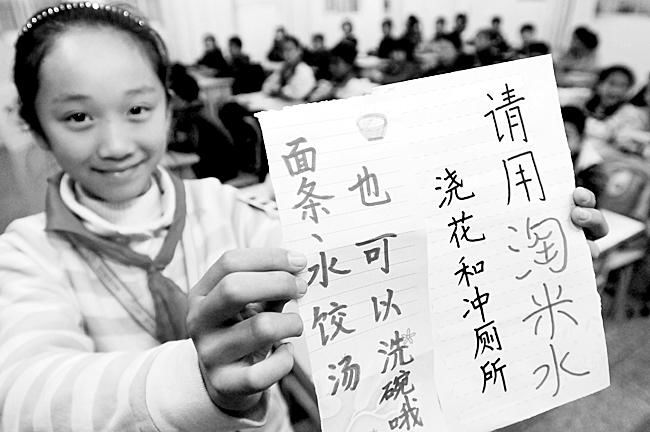 请用淘米水
浇花和冲厕所
面条、水饺汤
也可以洗碗哦